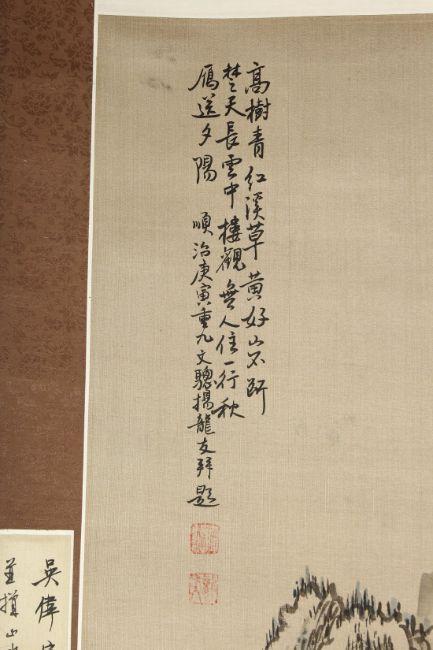 高樹青紅溪草黄好山不斷
楚天長雲中樓觀無人住一行秋
鴈送夕陽 順治庚寅重九文驄楊龍友拜題
吳偉
並撰山水